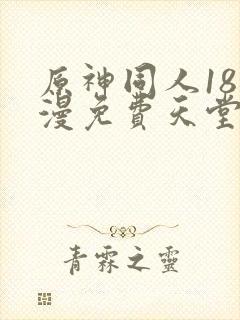 原神同人18
漫免費天堂
青霖之靈